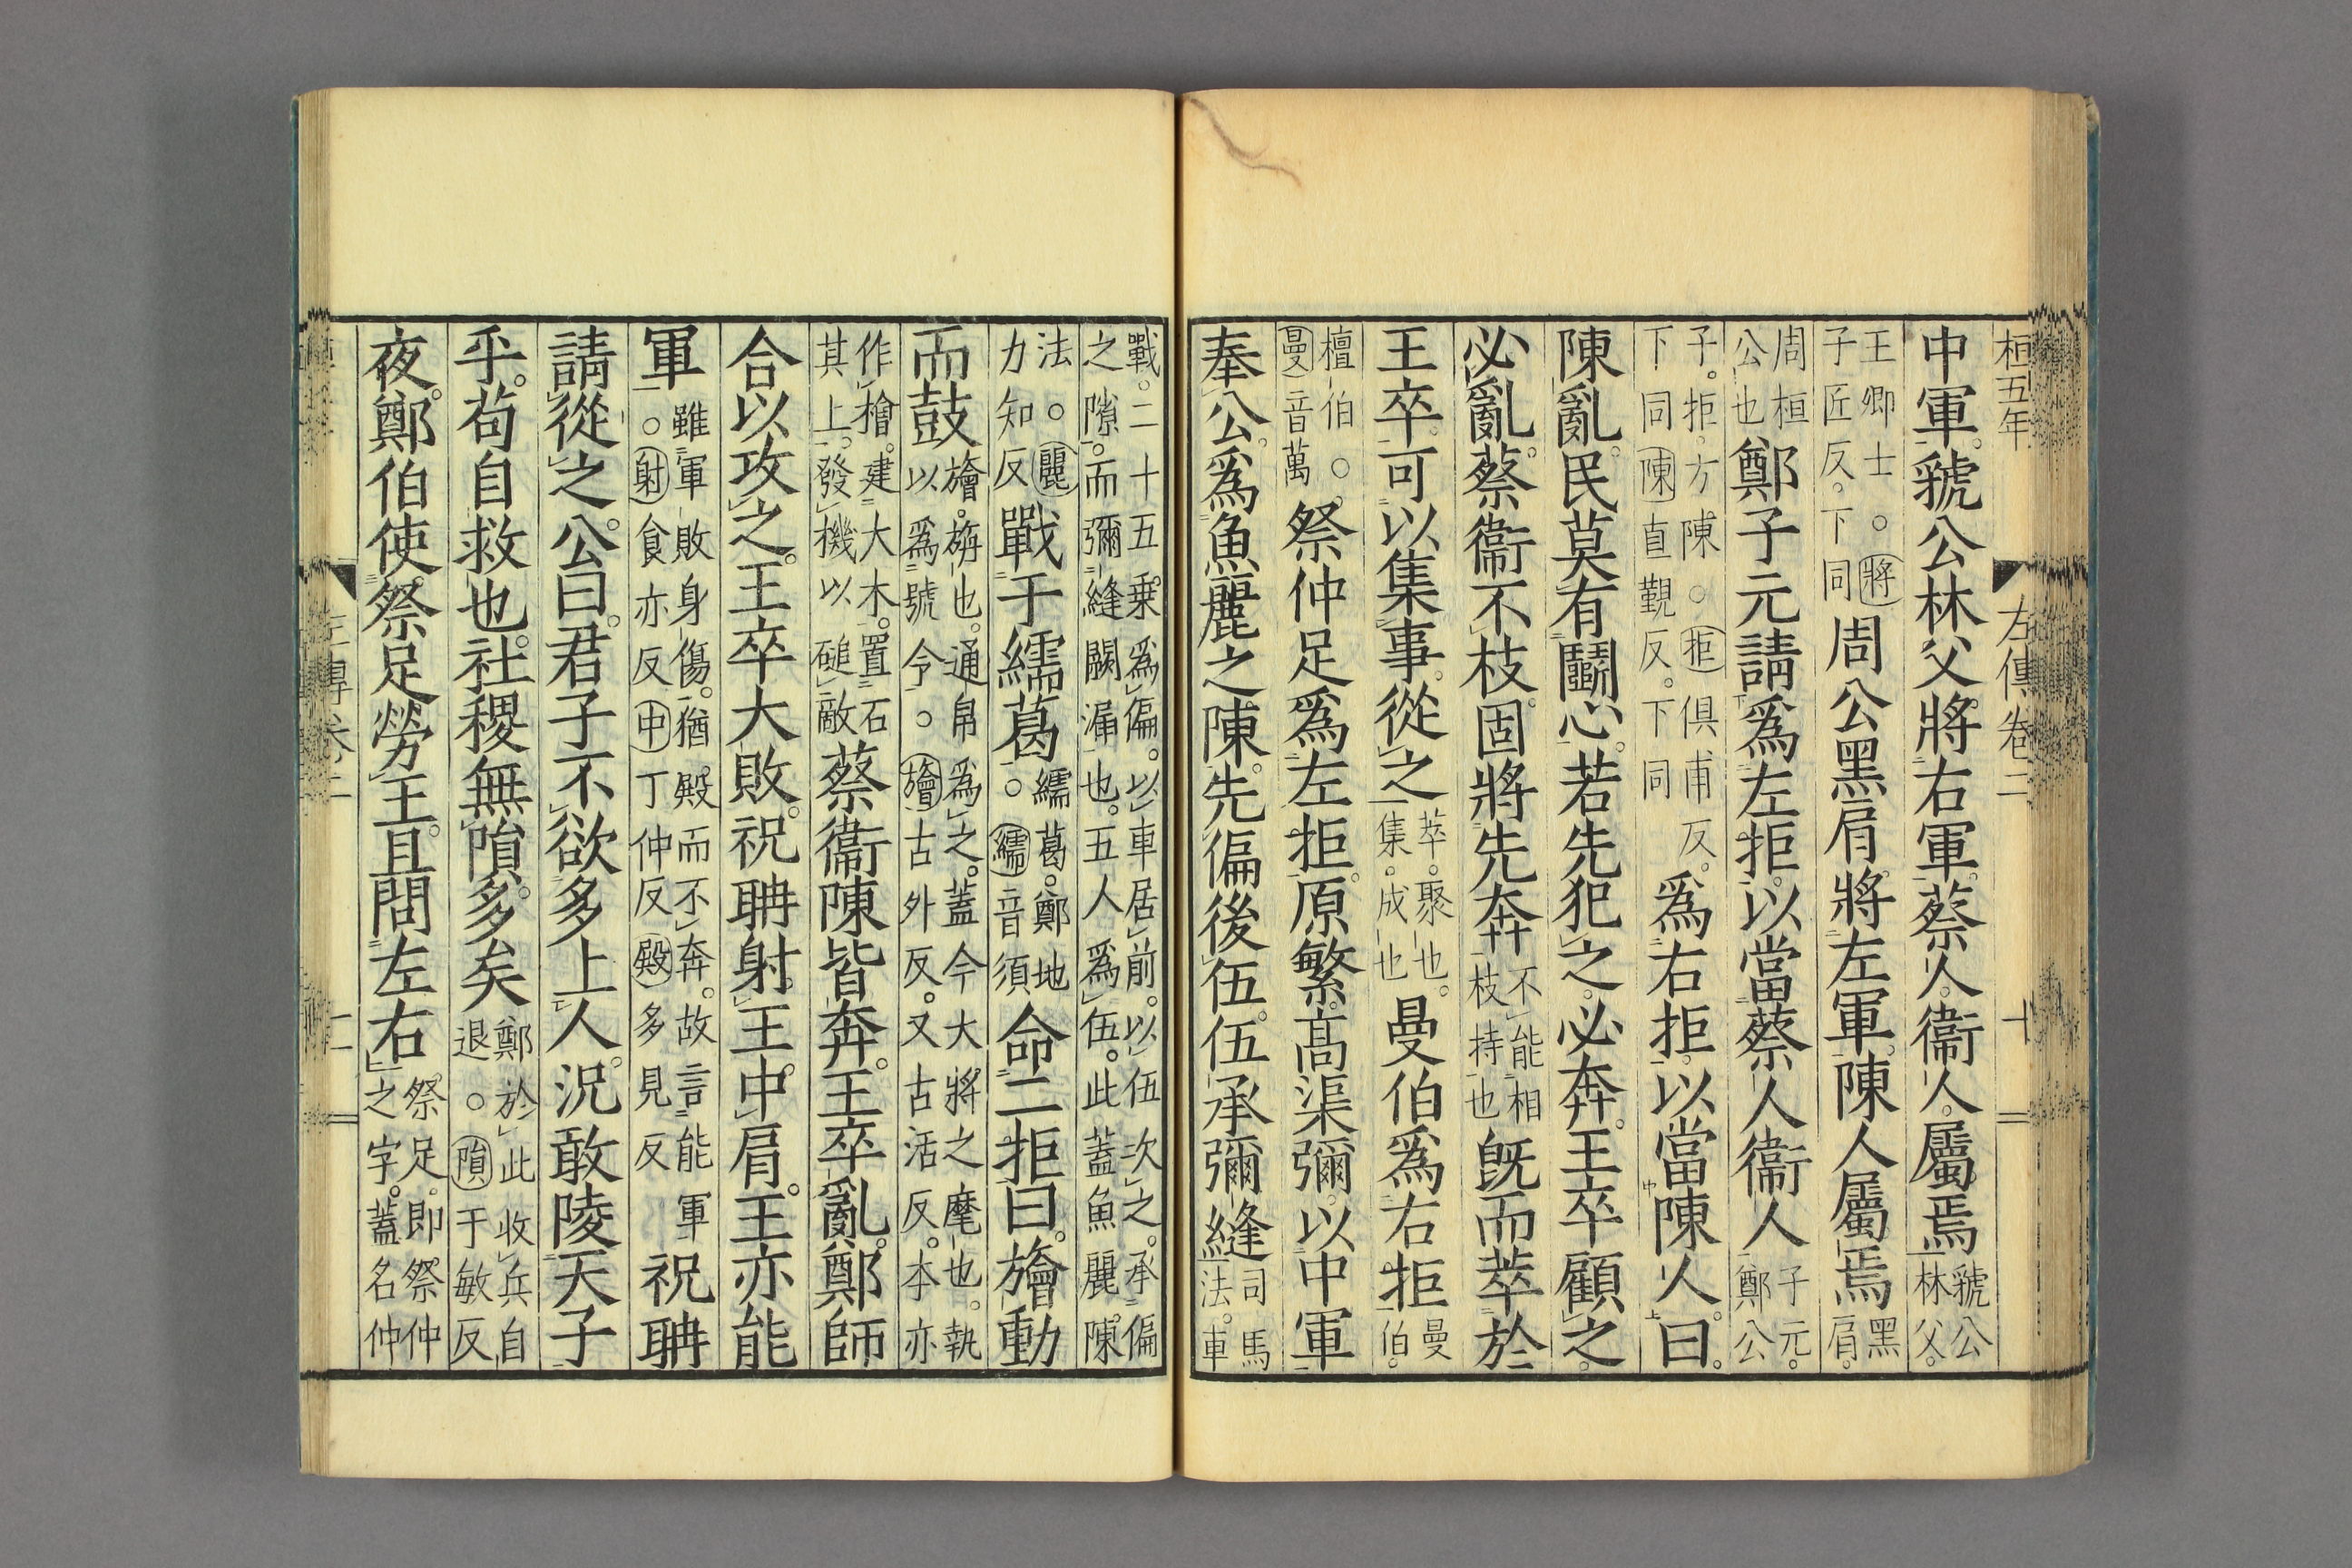 桓五年
左傳卷二
十
中軍。虢公林父。將右軍。蔡人。衞人。屬焉虢公林父。
王卿士○將子匠反。下同周公黑肩。將左軍。陳人屬焉黑肩。
周桓公也鄭子元請爲左拒。以當蔡人衞人子元。鄭公
子。拒。方陳○拒俱甫反。下同陳直覲反。下同爲右拒。以當陳人。曰。
陳亂。民莫有鬭心。若先犯之。必奔。王卒顧之。
必亂。蔡衞不枝。固將先奔不能相枝持也旣而萃於
王卒。可以集事。從之萃。聚也。集。成也曼伯爲右拒曼伯。
檀伯○曼音萬祭仲足爲左拒。原繁。高渠彌。以中軍
奉公。爲魚麗之陳。先偏後伍。伍承彌縫司馬法。車
戰。二十五乗爲偏。以車居前。以伍次之。承偏之隙。而彌縫闕漏也。五人爲伍。此蓋魚麗陳
法○麗力知反戰于繻葛繻葛。鄭地○繻音須命二拒曰。旝動
而鼓旝。旃也。通帛爲之。蓋今大將之麾也。執以爲號令○旝古外反。又古活反。本亦
作檜。建大木。置石其上。發機以磓敵蔡衞陳皆奔。王卒亂。鄭師
合以攻之。王卒大敗。祝聃射王。中肩。王亦能
軍雖軍敗身傷。猶殿而不奔。故言能軍○射食亦反中丁仲反殿多見反祝聃
請從之。公曰。君子不欲多上人。況敢陵天子
乎。苟自救也。社稷無隕。多矣鄭於此收兵自退○隕于敏反
夜。鄭伯使祭足勞王。且問左右祭足。即祭仲之字。蓋名仲